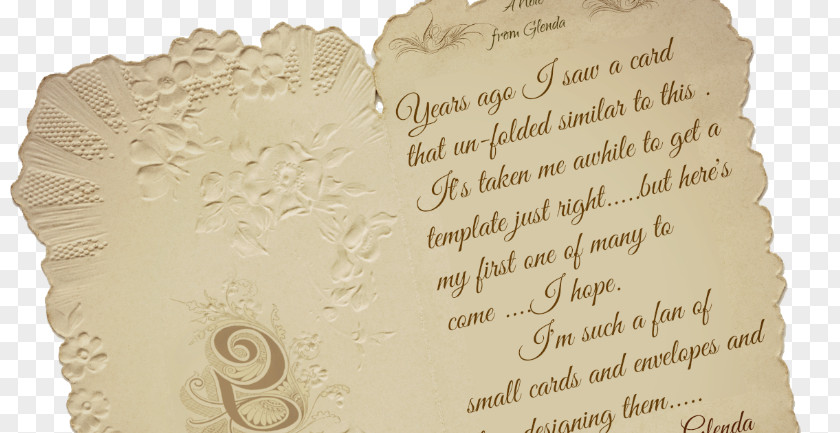 A Note
from Glenda
Years ago I saw a card
that un-folded similar to this .
It's taken me awhile to get a
template just right.....but here's
my first one of many to
come ....I hope.
I'm such a fan of
small cards and envelopes and
designing them.....
Glenda